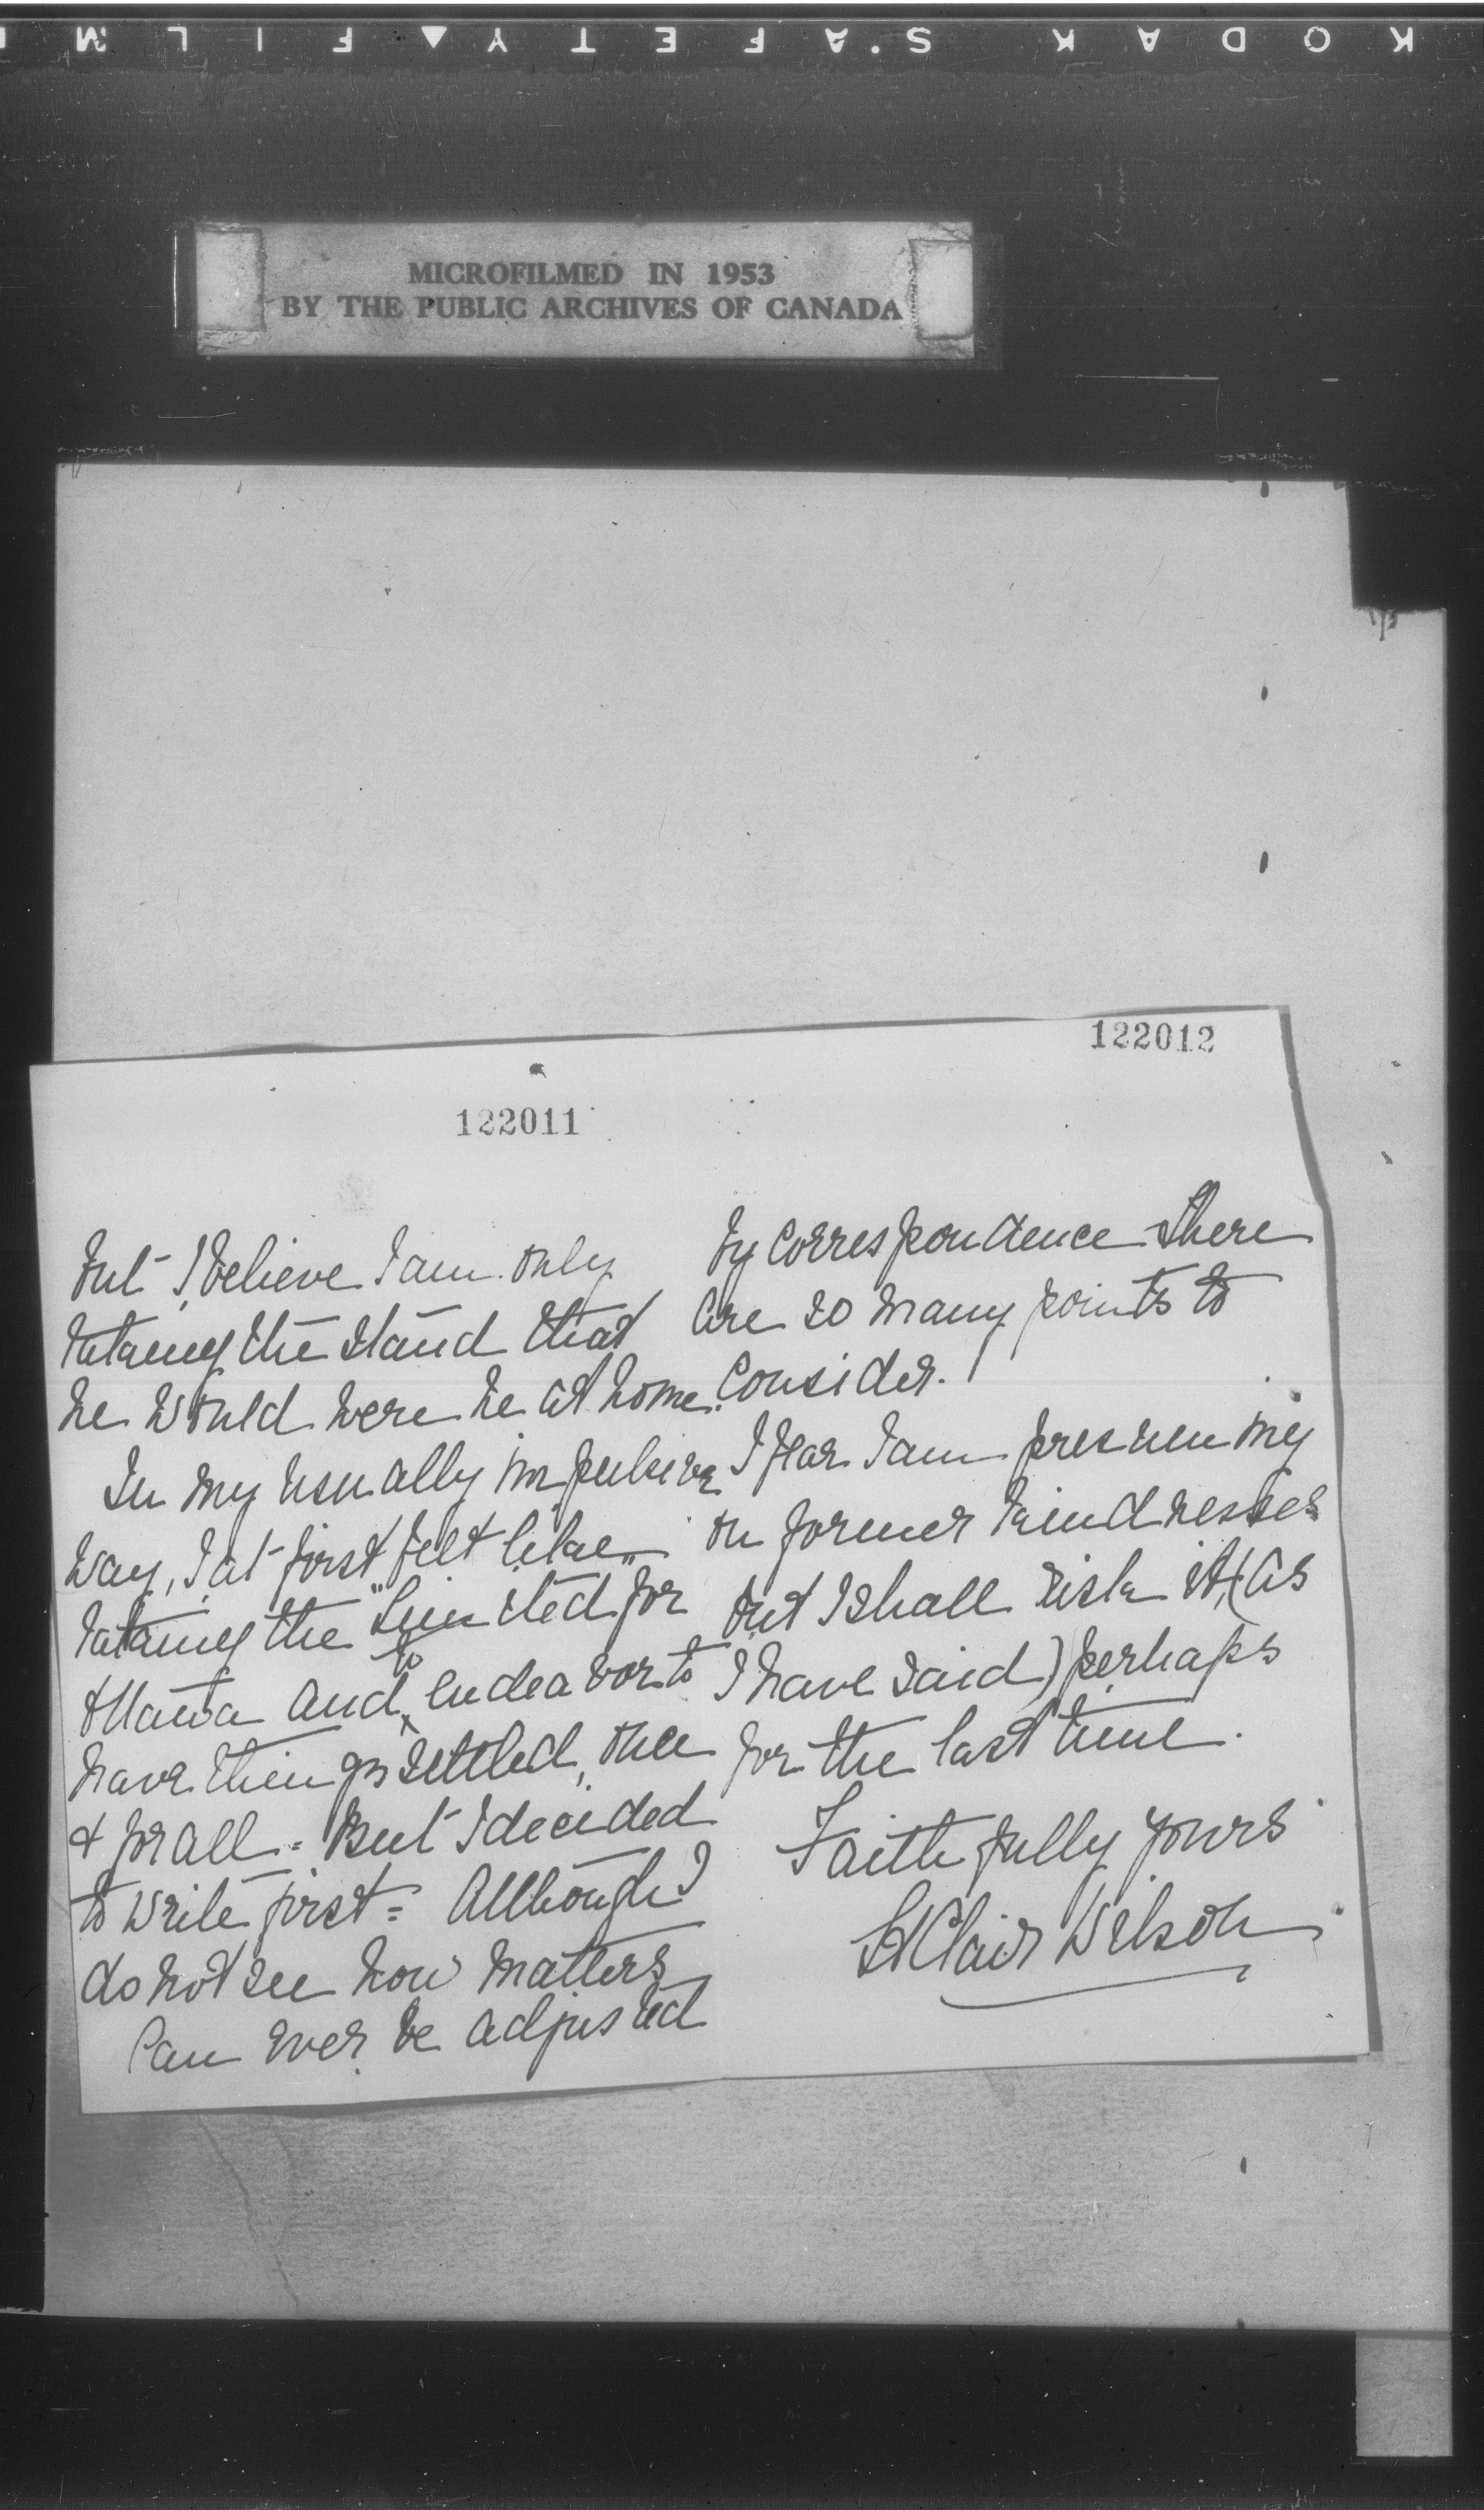 KODAK SAFETY FILM
MICROFILMED IN 1953
BY THE PUBLIC ARCHIVES OF CANADA
122011
but I believe I am only
taking the stand that
he would were he at home.
In my usually impulsive
way, I at first felt like
taking the "Limited" for
Ottawa and to endeavor to
have things settled, once
& for all. But I decided
to write first = Although I
do not see how matters
can ever be adjusted
122012
by correspondence There
are so many points to
consider.
I fear I am presuming
on former kindnesses
but I shall risk it, (as
I have said) perhaps
for the last time.
Faithfully yours
St Clair Wilson